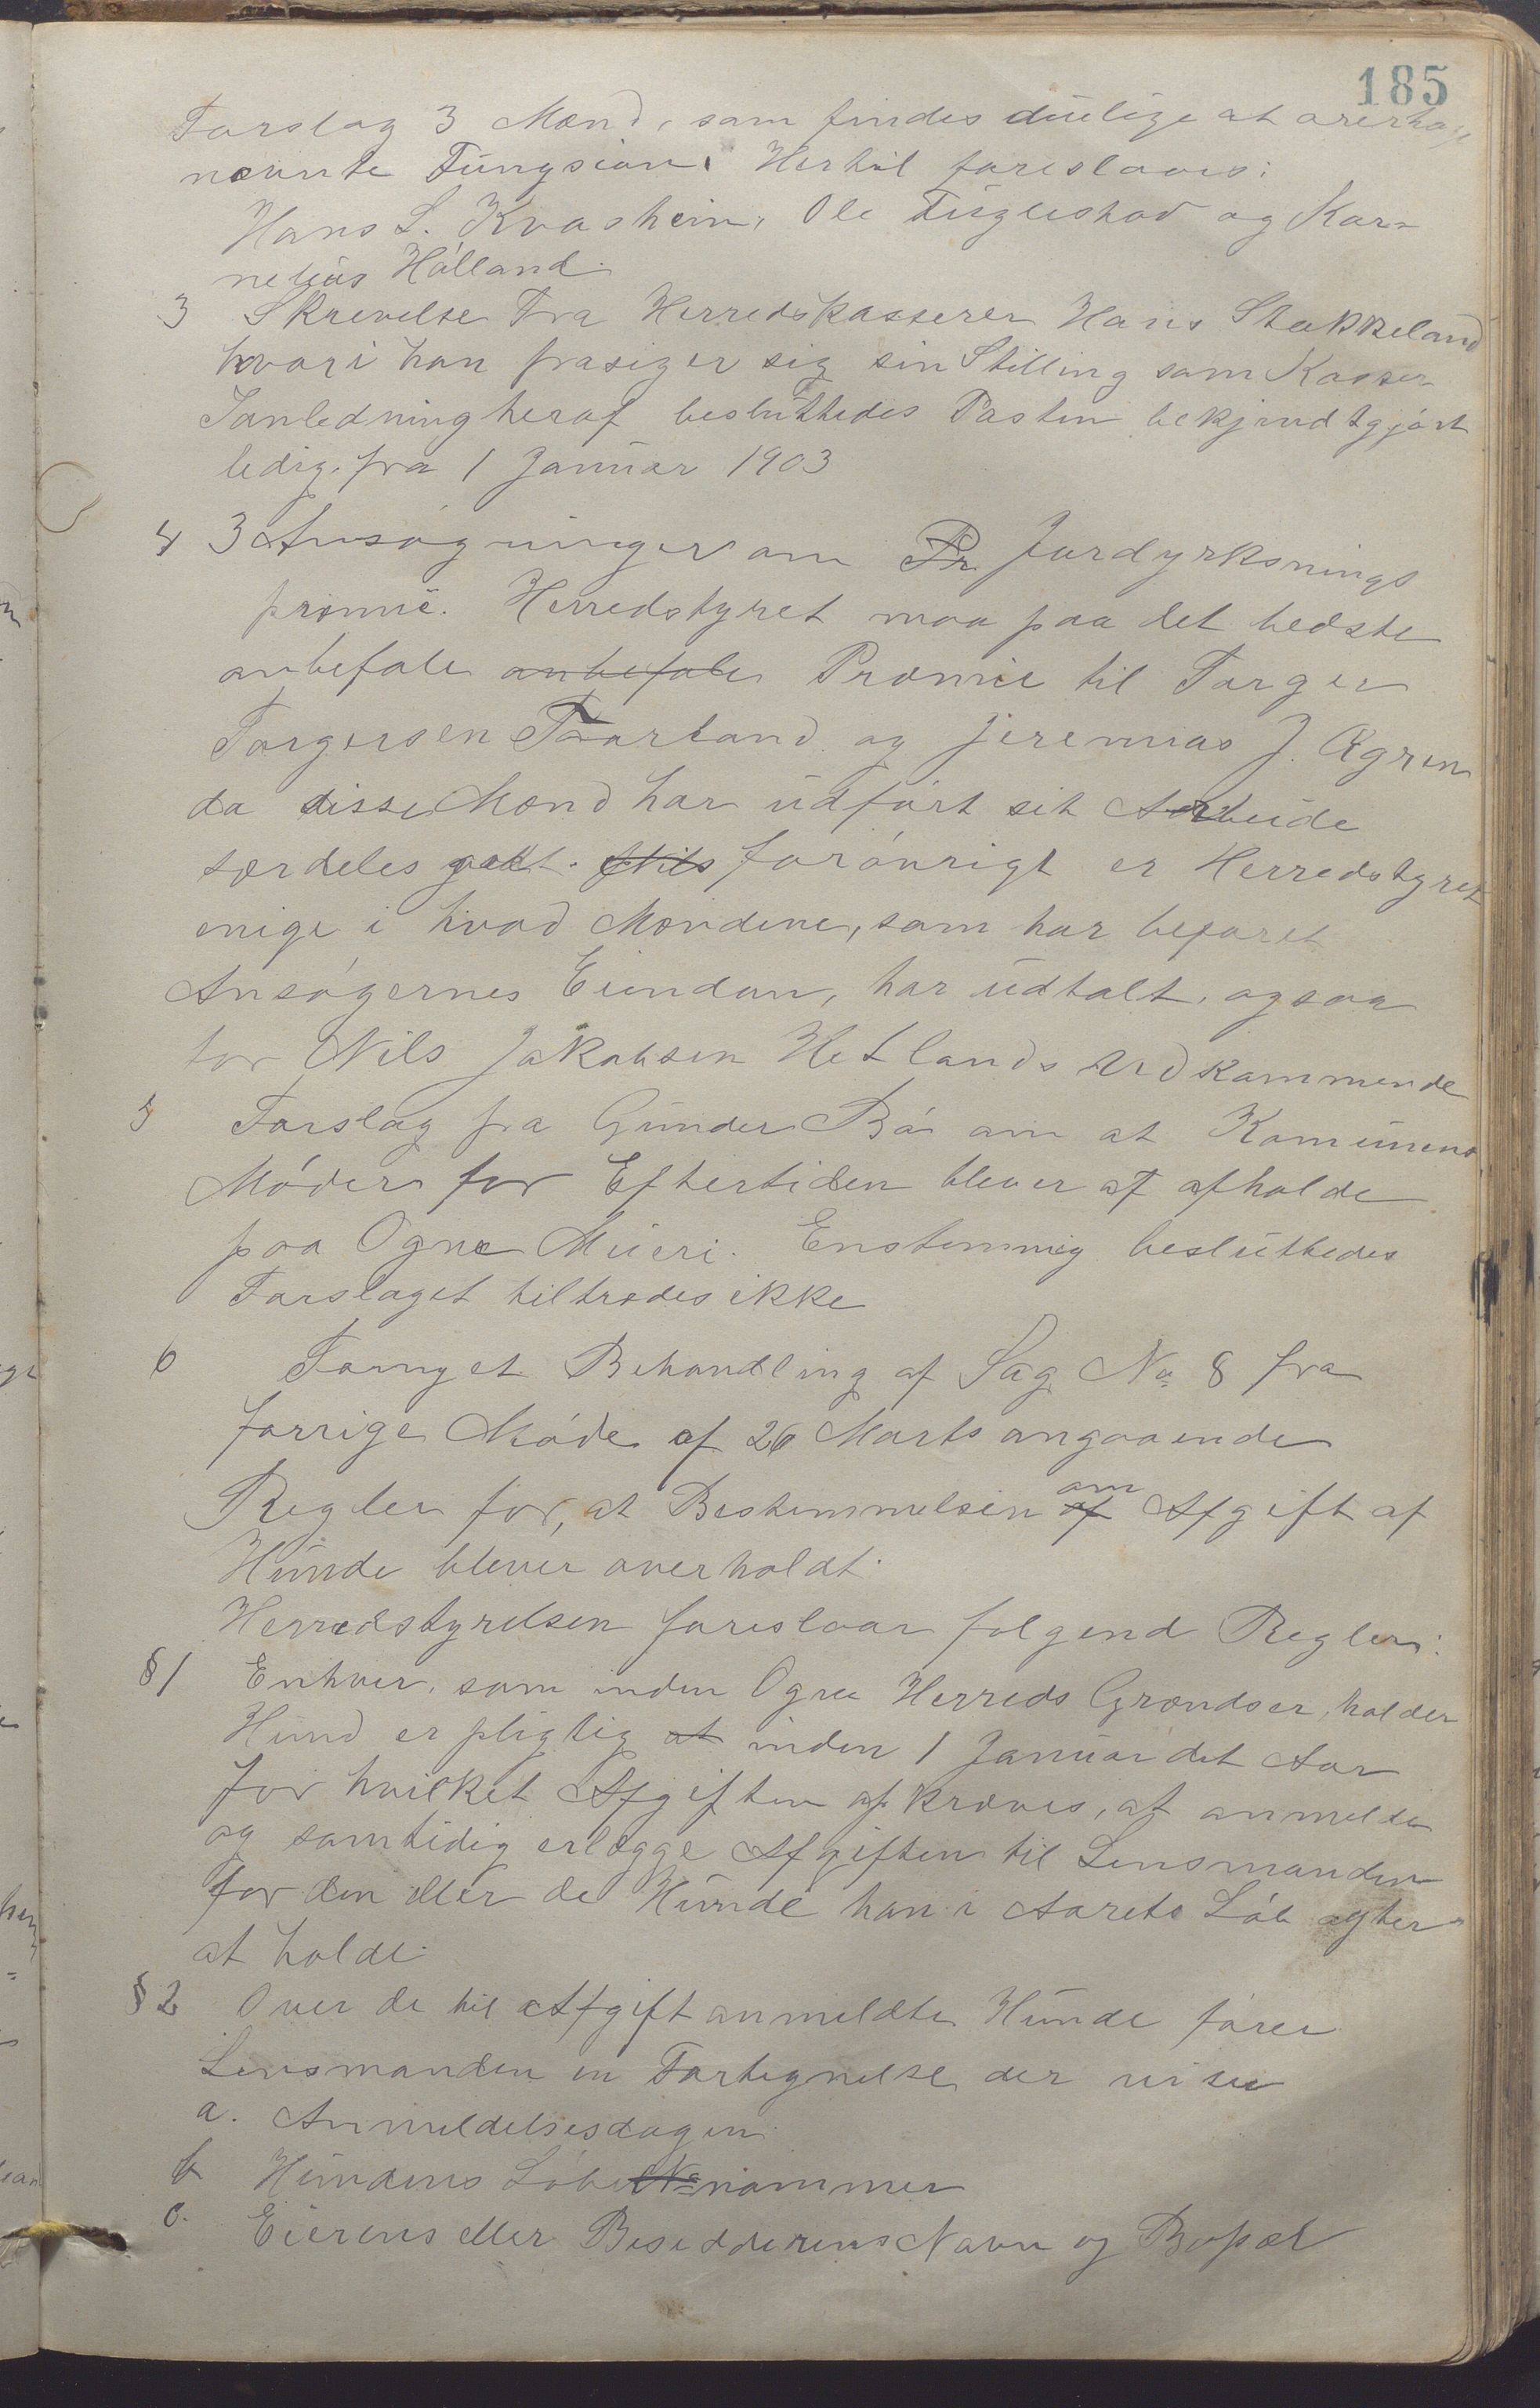 185
Forslag 3 Mænd, som findes duelige at overtage
nævnte Fungsion. Hertil foreslaaes:
Hans S. Kvashein, Ole Fuglestad og Kor-
nelius Hålland.
3 Skrevelse Fra Herredskasserer Hans Stokkeland
hvori han frasiger sig sin Stilling som Kasser
Ianledning heraf besluttedes Posten bekjendtgjørt
ledig fra 1 Januar 1903
4 3 Ansøgninger om Pr. Jordyrksnings
premie. Herredstyret maa paa det bedste
anbefale anbefale Premie til Torger
Torgersen Taarland og Jeremias J. Ogren
da disse Mænd har udført sit Arbeide
særdeles godt. Nils forøvrigt er Herredstyret
enige i hvad Mændene, som har befaret
Ansøgernes Eiendom, har udtalt, ogsaa
for Nils Jakobsen Hetlands Vedkommende
5 Forslag fra Gunder Bø om at Komunens
Møder for Eftertiden blever at afholde
paa Ogne Mieri. Enstemmig besluttedes
Forslaget tiltrædes ikke
6 Fornyet Behandling af Sag No 8 fra
forrige Møde af 26 Marts angaaende
Regler for, at Bestemmelsen af om Afgift af
Hunde blever overholdt.
Herredstyrelsen foreslaar følgend Regler:
§1 Enhver, som inden Ogna Herreds Grændser, holder
Hund er pligtig at inden 1 Januar det Aar
for hvilket Afgiften afkræves, at anmelde
og samtidig erlægge Afgiften til Lensmanden
for den eller de Hunde han i Aarets Løb agter
at holde.
§2 Over de til Afgift anmeldte Hunde fører
Lensmanden en Fortegnelse der viser
a. Anmeldelsesdagen.
b Hundens Løbe No nommer
c. Eierens eller Besidderens Navn og Bopæl